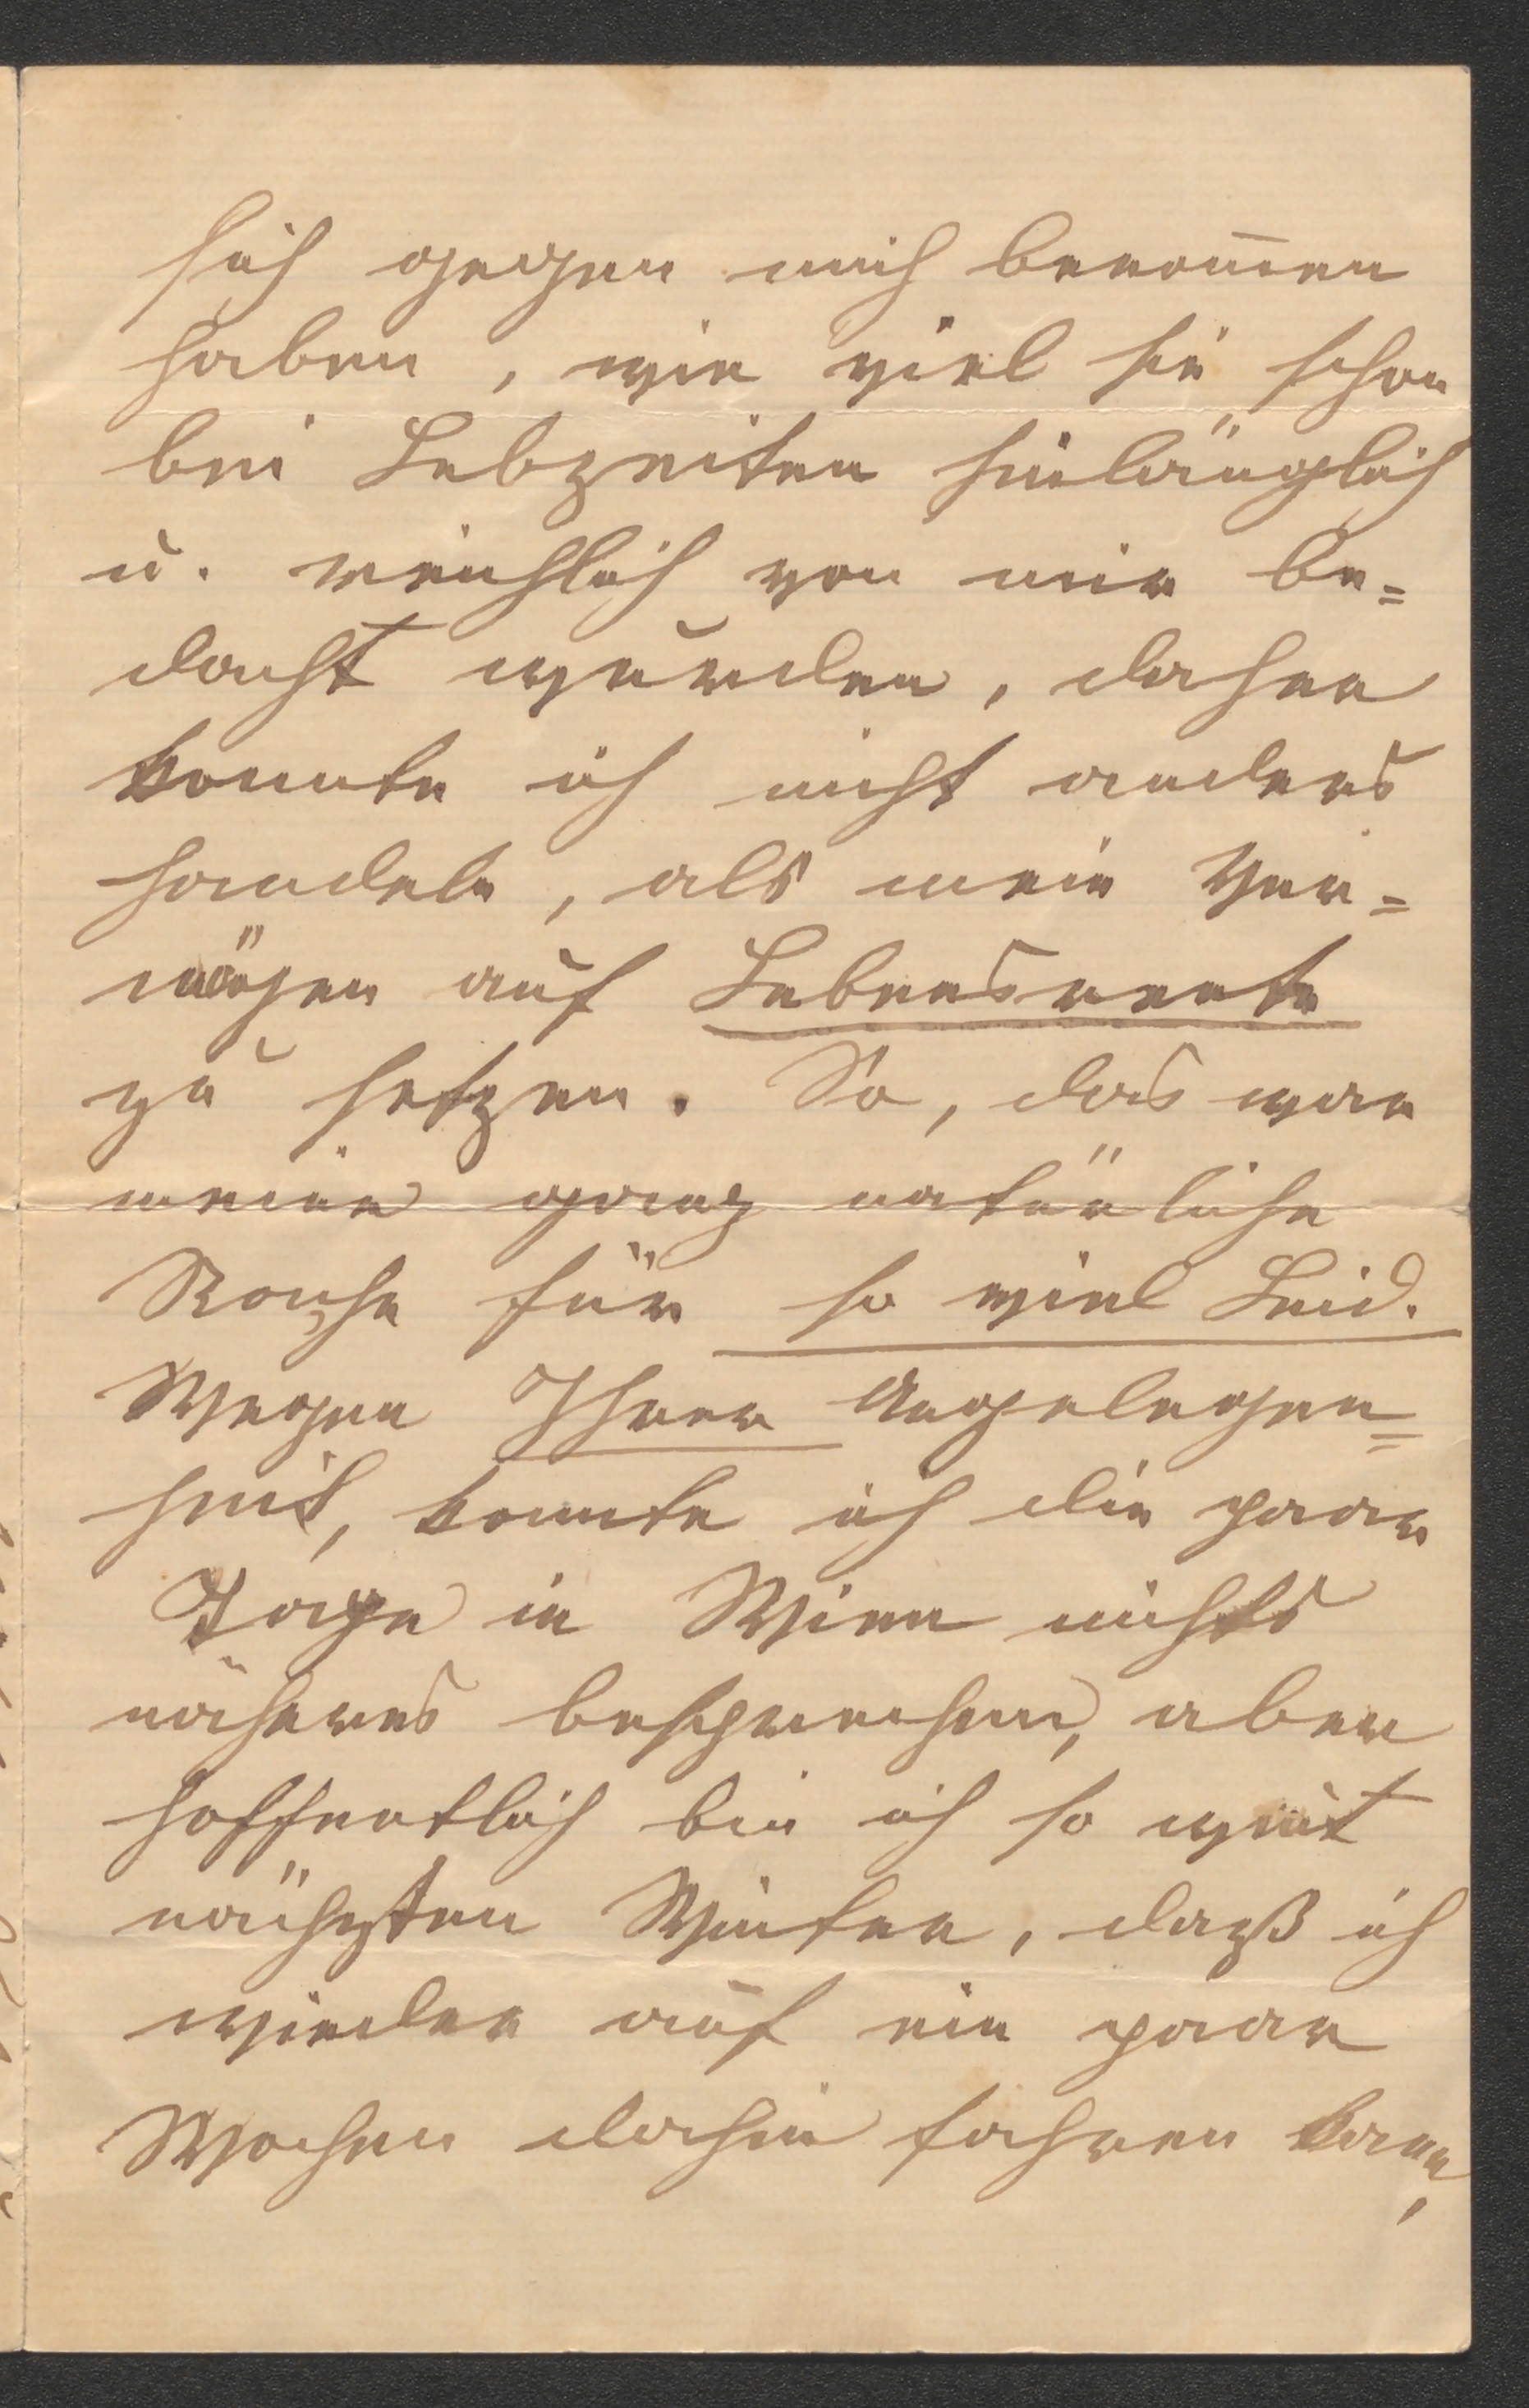 sich gegen mich benom̄en
haben, wie viel sie schon
bei Lebzeiten hinlänglich
u. reichlich von mir be=
dacht wurden, daher
konnte ich nicht anders
handeln, als mein Ver=
mögen auf Lebensrente
zu setzen. So, das war
meine ganz natürliche
Rache für so viel Leid.
Wegen Ihrer Angelegen=
heit, konnte ich die paar
Tage in Wien nichts
näheres besprechen, aber
hoffentlich bin ich so weit
nächsten Winter, daß ich
wieder auf ein paar
Wochen dahin fahren kann,